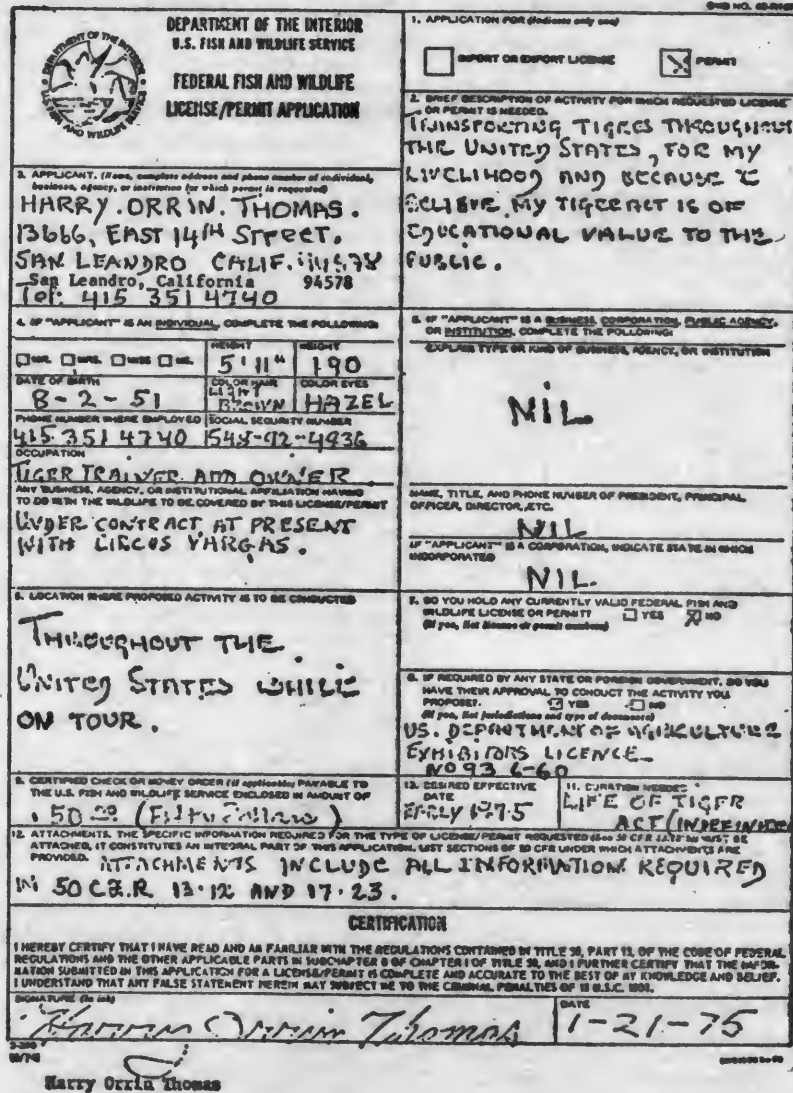 DEPARTMENT OF THE INTERIOR
U.S. FISH AND WILDLIFE SERVICE
FEDERAL FISH AND WILDLIFE
LICENSE/PERMIT APPLICATION
DEPARTMENT OF THE INTERIOR
U.S. FISH AND WILDLIFE SERVICE
OMB NO.
1. APPLICATION FOR (Indicate only one)
IMPORT OR EXPORT LICENSE
PERMIT
2. BRIEF DESCRIPTION OF ACTIVITY FOR WHICH REQUESTED LICENSE
OR PERMIT IS NEEDED.
TRANSPORTING TIGRES THROUGHOUT
THE UNITED STATES, FOR MY
LIVELIHOOD AND BECAUSE I
BELIEVE MY TIGERACT IS OF
EDUCATIONAL VALUE TO THE
PUBLIC.
3. APPLICANT. (Name, complete address and phone number of individual,
business, agency, or institution for which permit is requested)
HARRY. ORRIN. THOMAS.
13666, EAST 14TH STREET.
SAN LEANDRO CALIF. 94578
San Leandro, California 94578
Tel: 415 351 4740
4. IF "APPLICANT" IS AN INDIVIDUAL, COMPLETE THE FOLLOWING:
MR. MRS. MISS MS.
HEIGHT
5' 11"
WEIGHT
190
DATE OF BIRTH
8-2-51
COLOR HAIR
LIGHT
BROWN
COLOR EYES
HAZEL
PHONE NUMBER WHERE EMPLOYED
415 351 4740
SOCIAL SECURITY NUMBER
548-92-4936
OCCUPATION
TIGER TRAINER AND OWNER
ANY BUSINESS, AGENCY, OR INSTITUTIONAL AFFILIATION HAVING
TO DO WITH THE WILDLIFE TO BE COVERED BY THIS LICENSE/PERMIT
UNDER CONTRACT AT PRESENT
WITH CIRCUS VARGAS.
5. IF "APPLICANT" IS A BUSINESS, CORPORATION, PUBLIC AGENCY,
OR INSTITUTION, COMPLETE THE FOLLOWING:
EXPLAIN TYPE OR KIND OF BUSINESS, AGENCY, OR INSTITUTION
NIL
NAME, TITLE, AND PHONE NUMBER OF PRESIDENT, PRINCIPAL
OFFICER, DIRECTOR, ETC.
NIL
IF "APPLICANT" IS A CORPORATION, INDICATE STATE IN WHICH
INCORPORATED
NIL.
6. LOCATION WHERE PROPOSED ACTIVITY IS TO BE CONDUCTED
THROUGHOUT THE
UNITED STATES WHILE
ON TOUR.
7. DO YOU HOLD ANY CURRENTLY VALID FEDERAL FISH AND
WILDLIFE LICENSE OR PERMIT? YES NO
(If yes, list license or permit numbers)
8. IF REQUIRED BY ANY STATE OR FOREIGN GOVERNMENT, DO YOU
HAVE THEIR APPROVAL TO CONDUCT THE ACTIVITY YOU
PROPOSE? YES NO
(If yes, list jurisdictions and type of documents)
US. DEPARTMENT OF AGRICULTURE
EXHIBITORS LICENCE
NO 93 6-60
9. CERTIFIED CHECK OR MONEY ORDER (if applicable) PAYABLE TO
THE U.S. FISH AND WILDLIFE SERVICE ENCLOSED IN AMOUNT OF
50.00 (Fifty Dollars)
10. DESIRED EFFECTIVE
DATE
EARLY 1975
11. DURATION NEEDED
LIFE OF TIGER
ACT (INDEFINITE)
12. ATTACHMENTS. THE SPECIFIC INFORMATION REQUIRED FOR THE TYPE OF LICENSE/PERMIT REQUESTED MUST BE
ATTACHED, IT CONSTITUTES AN INTEGRAL PART OF THIS APPLICATION. LIST SECTIONS OF 50 CFR UNDER WHICH ATTACHMENTS ARE
PROVIDED.
ATTACHMENTS INCLUDE ALL INFORMATION REQUIRED
IN 50 C.F.R 13.12 AND 17.23.
CERTIFICATION
I HEREBY CERTIFY THAT I HAVE READ AND AM FAMILIAR WITH THE REGULATIONS CONTAINED IN TITLE 50, PART 13, OF THE CODE OF FEDERAL
REGULATIONS AND THE OTHER APPLICABLE PARTS IN SUBCHAPTER B OF CHAPTER I OF TITLE 50, AND I FURTHER CERTIFY THAT THE INFOR-
MATION SUBMITTED IN THIS APPLICATION FOR A LICENSE/PERMIT IS COMPLETE AND ACCURATE TO THE BEST OF MY KNOWLEDGE AND BELIEF.
I UNDERSTAND THAT ANY FALSE STATEMENT HEREIN MAY SUBJECT ME TO THE CRIMINAL PENALTIES OF 18 U.S.C. 1001.
SIGNATURE (In ink)
Harry Orrin Thomas
DATE
1-21-75
Harry Orrin Thomas